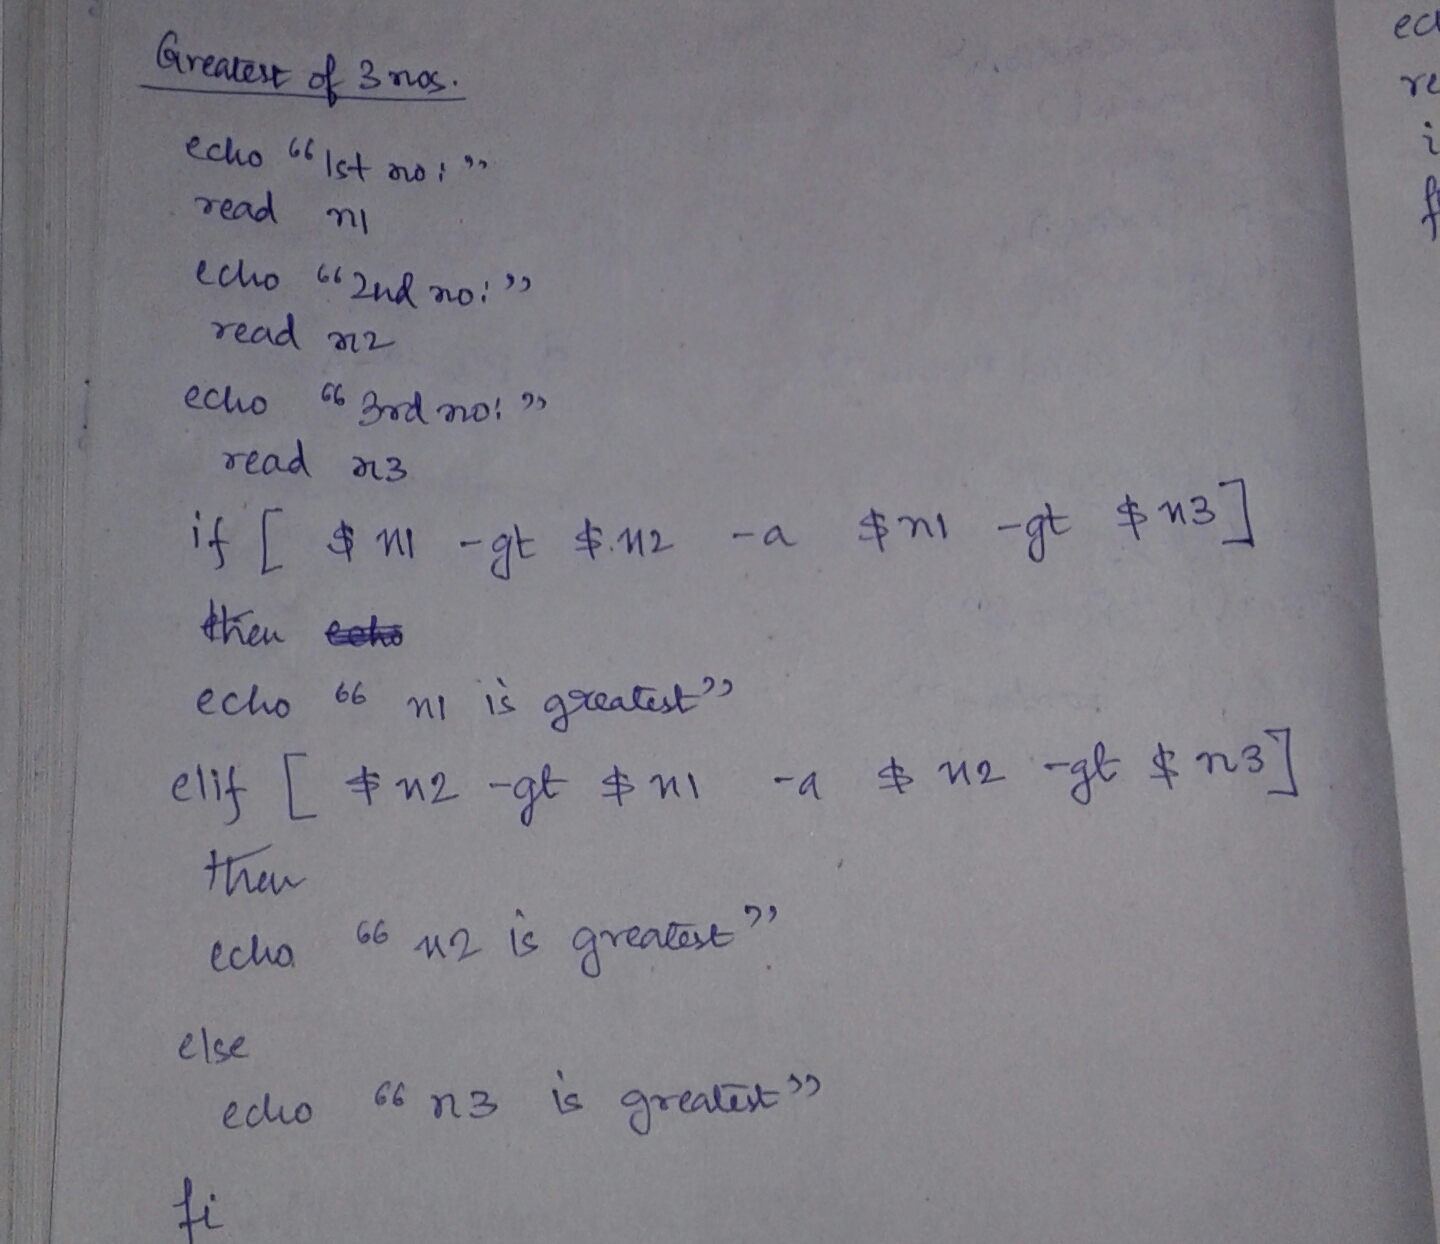 Greatest of 3 nos.
echo "1st no:"
read n1
echo "2nd no:"
read n2
echo "3rd no:"
read n3
if [ $n1 -gt $n2 -a $n1 -gt $n3]
then
echo "n1 is greatest"
elif [ $n2 -gt $n1 -a $n2 -gt $n3]
then
echo "n2 is greatest"
else
echo "n3 is greatest"
fi